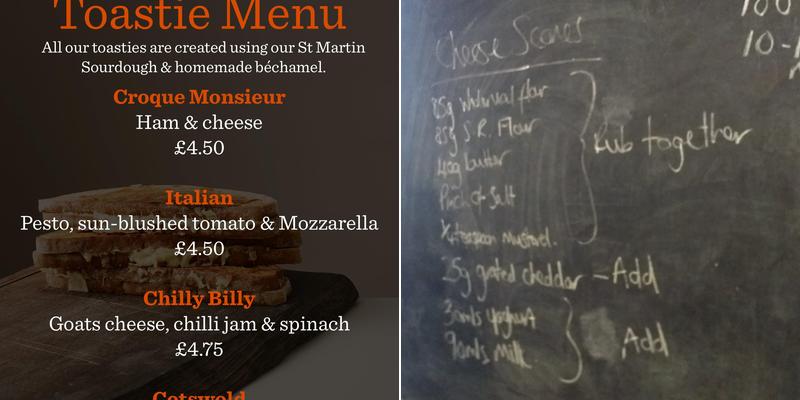 Toastie Menu
All our toasties are created using our St Martin
Sourdough & homemade béchamel.
Croque Monsieur
Ham & cheese
£4.50
Italian
Pesto, sun-blushed tomato & Mozzarella
£4.50
Chilly Billy
Goats cheese, chilli jam & spinach
£4.75
Cotswold
Cheese Scones
85g wholemeal flour
85g S.R. Flour
40g butter
Pinch of Salt
Rub together
1/4 teaspoon Mustard.
25g grated cheddar - Add
30mls yoghurt
90mls Milk.
Add
100
10-